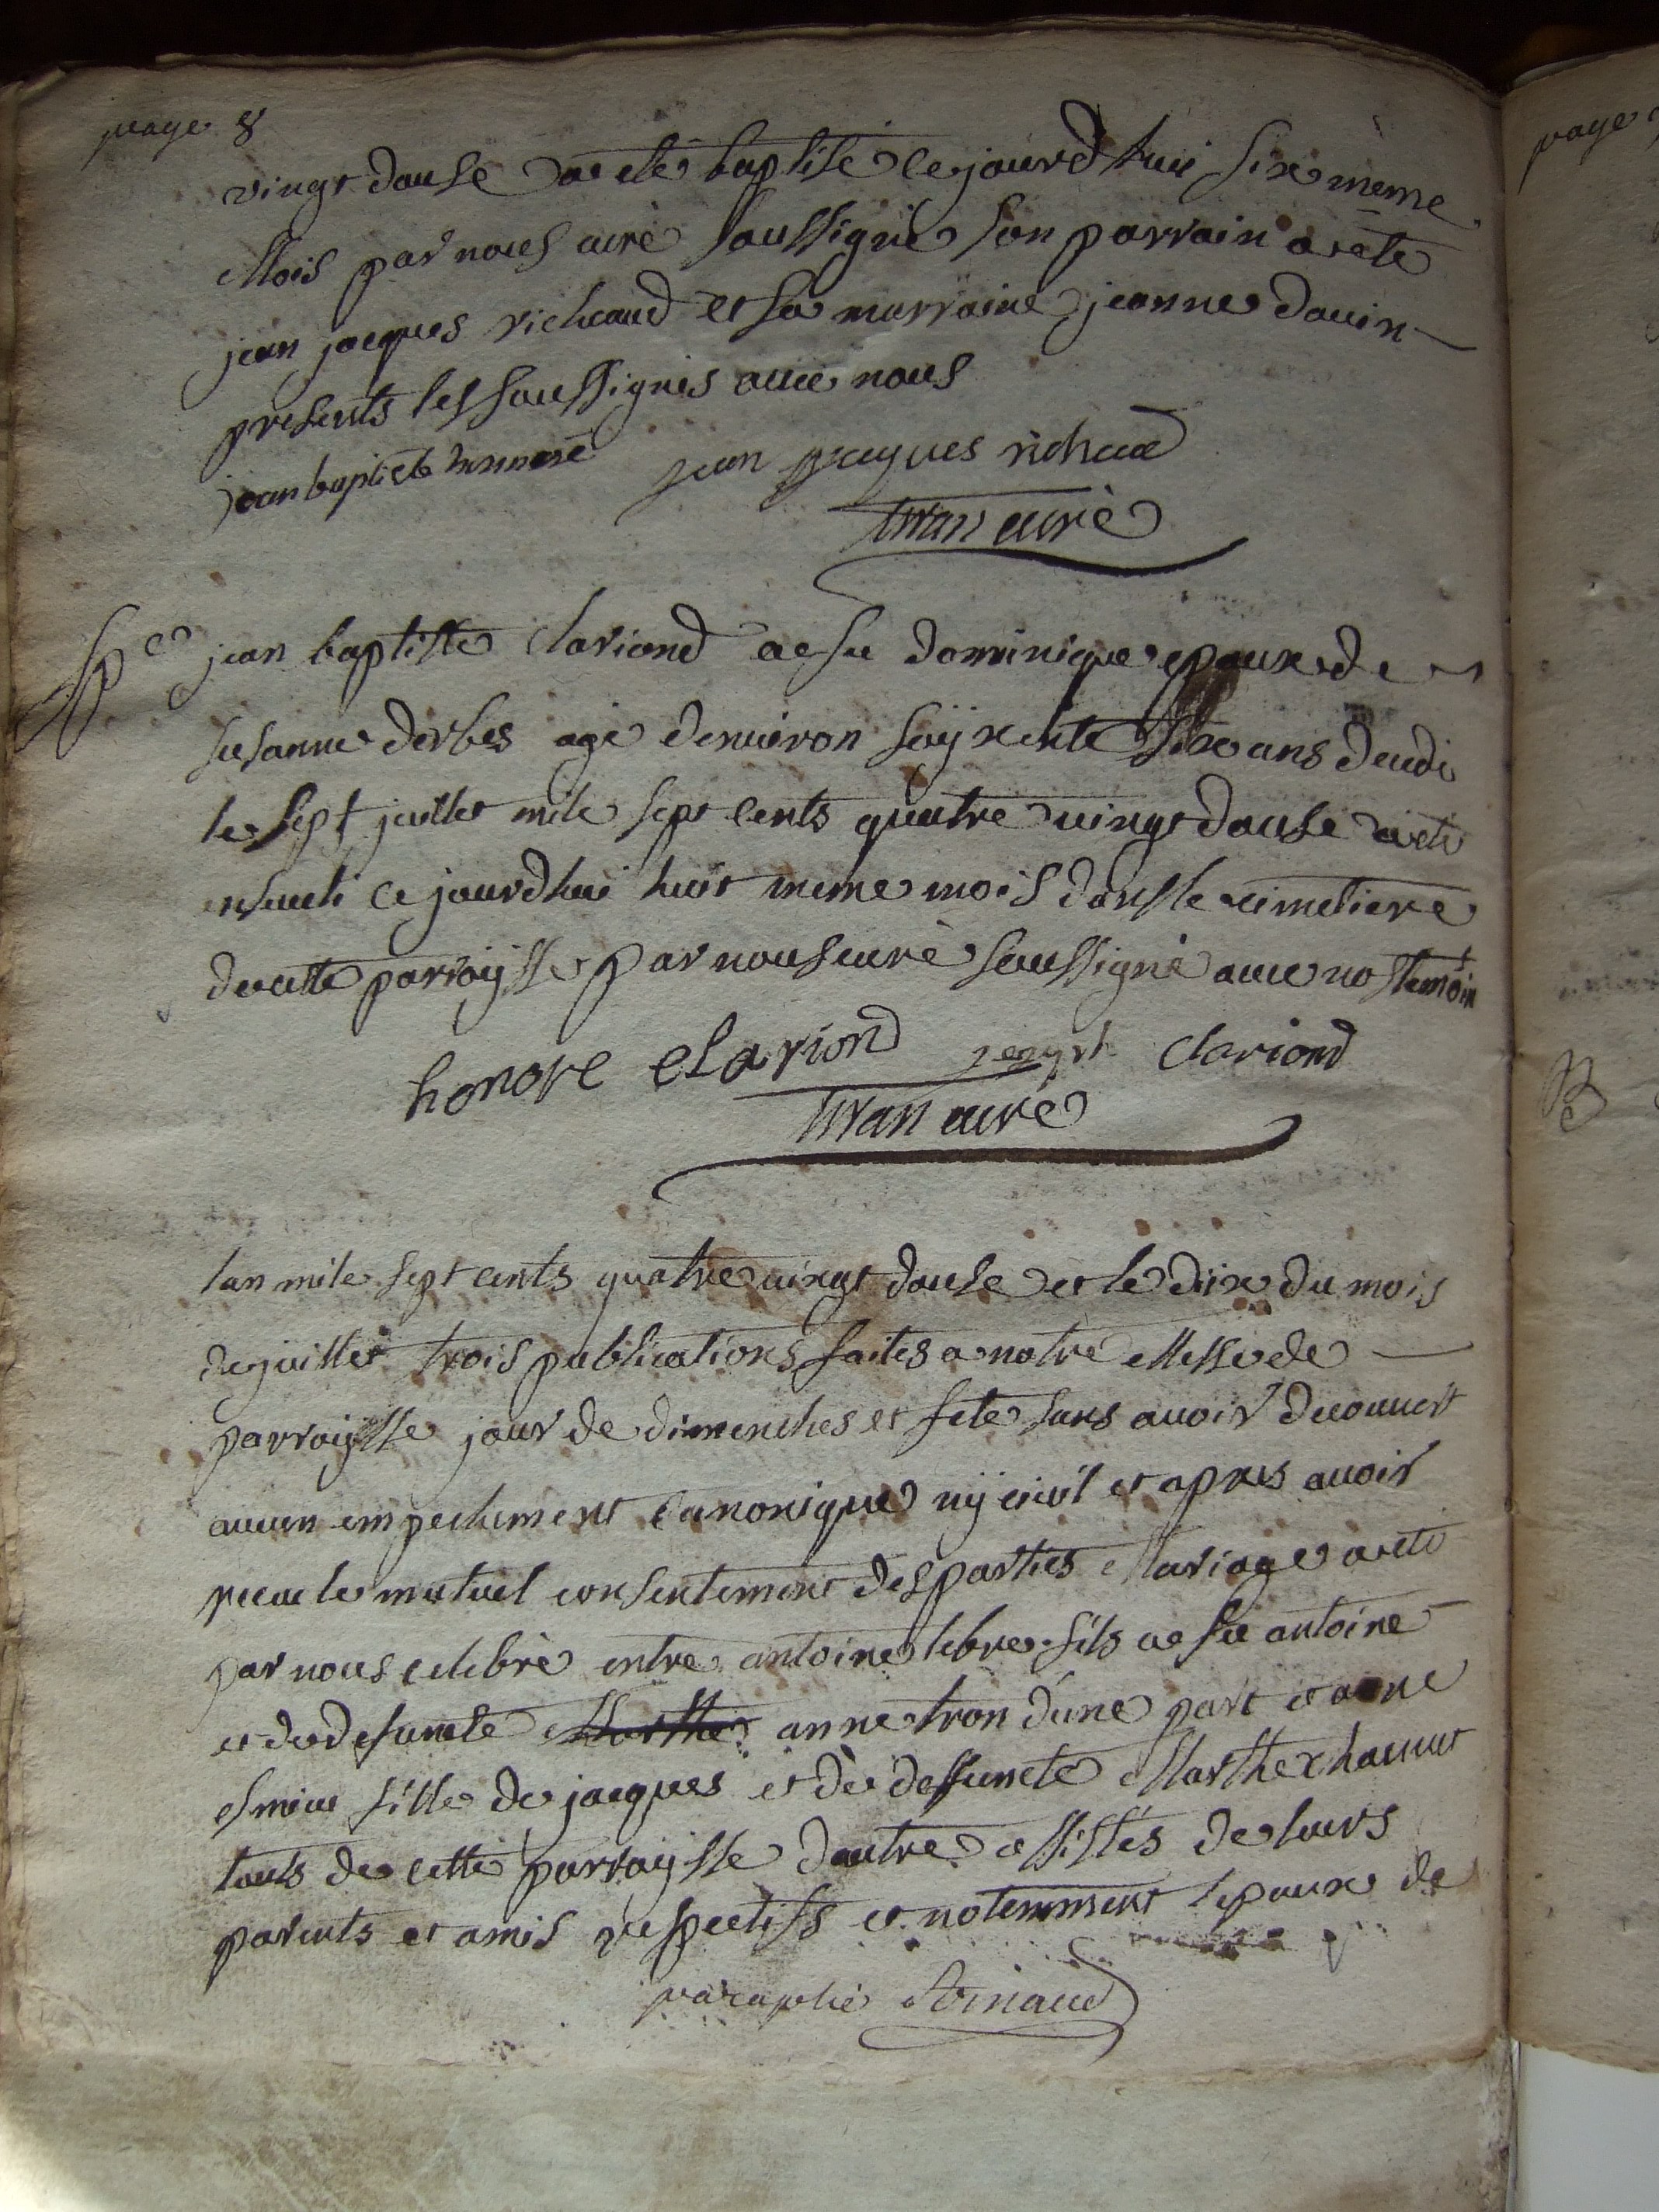 page 8
vingt douse a eté baptisé ce jourd hui six même
Mois par nous curé soussigné son parrain a eté
jean jacques richaud et sa marraine jeanne davin
presents les soussignés avec nous
jean baptiste honnoré jean jacques richaud
Tiran curé
Sp re jean baptiste clariond a feu dominique epoux de
susanne derbes agé denuiron soÿxente six ans decedé
le sept juillet mile sept cents quatre uingt douse a eté
enseueli ce jourdhui huit meme mois dans le cimetiere
de cette parroÿsse par nous curé soussigné auec nos temoin
honore clariond joseph clariond
Tiran curé
lan mile sept cents quatre uingt douse et le dix du mois
de juillet trois publications faites a notre Messe de
parroÿsse jour de dimenches et fete sans auoir decouuert
aucun empechement canonique nÿ ciuil et apres auoir
recu le mutuel consentement des parties Mariage a eté
par nous celebré entre antoine lebre fils a feu antoine
et de defuncte Marthe anne tron d'une part et anne
esmieu fille de jacques et de deffuncte Marthe chauuet
touts de cette parroÿsse d'autre assistés de leurs
parents et amis respectifs et notemment lepoux de
paraphé